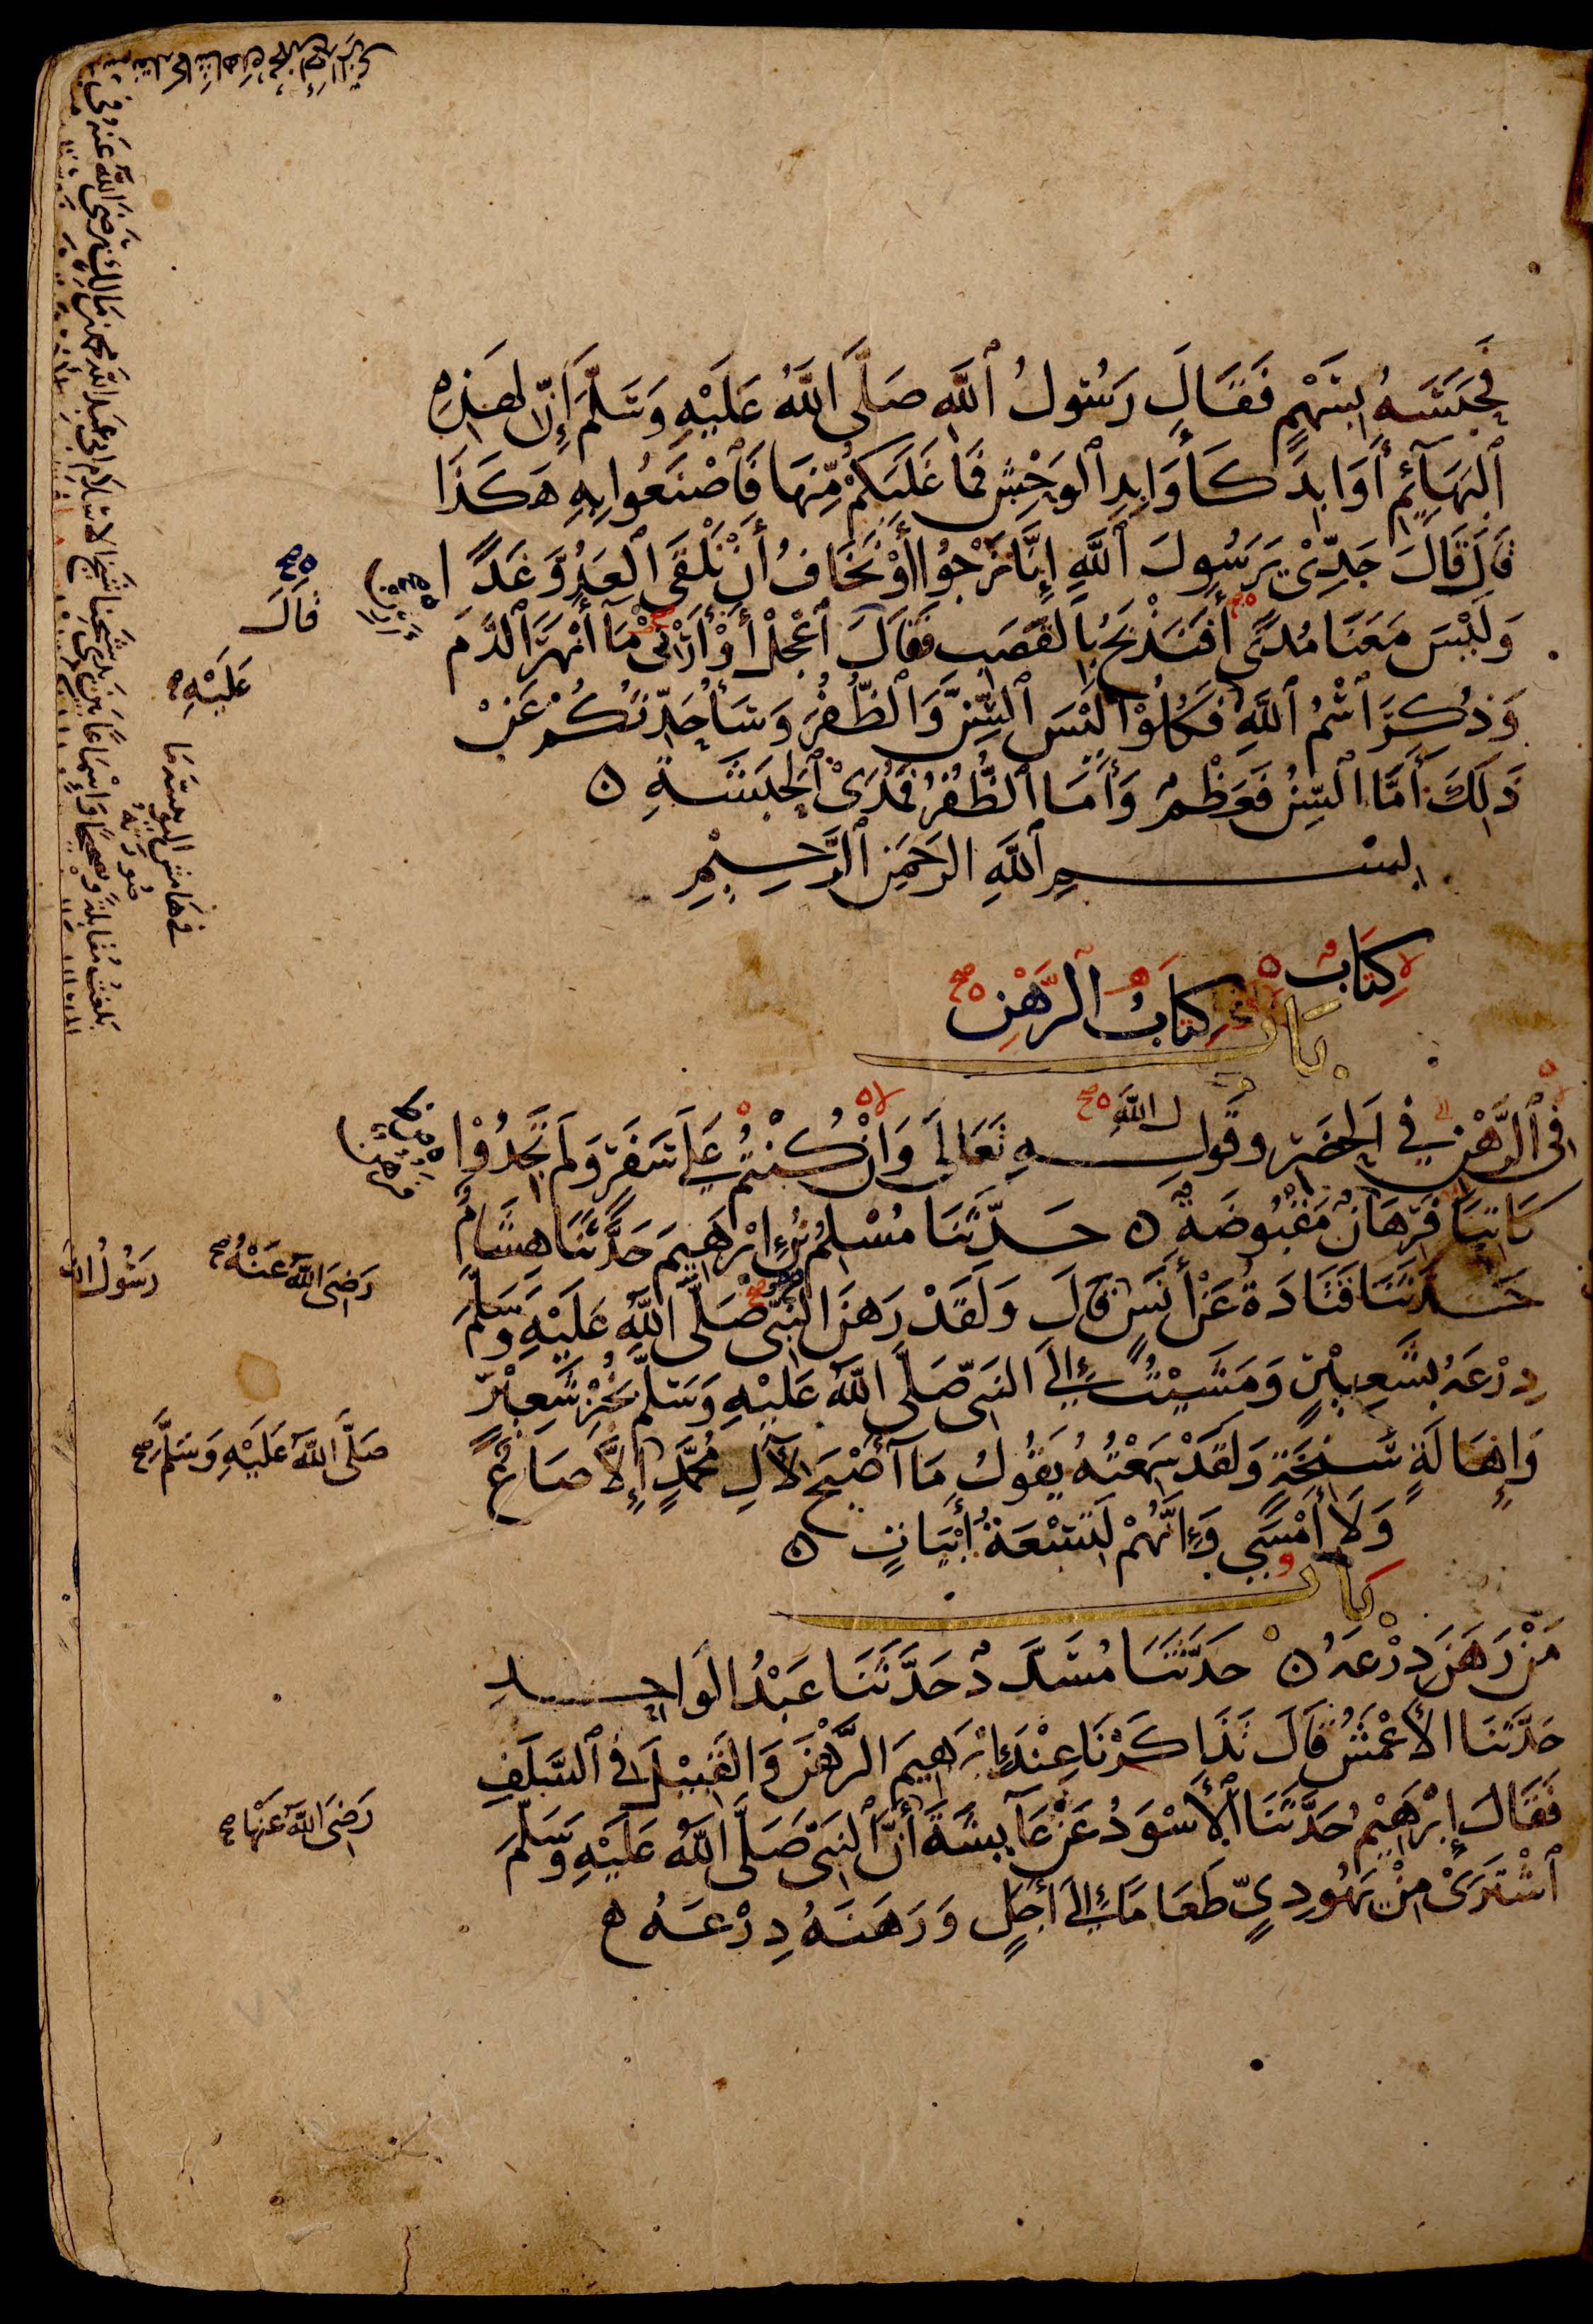 فَحَبَسَهُ بِسَهْمٍ فَقَالَ رَسُولُ ٱللَّهِ صَلَّى اللَّهُ عَلَيْهِ وَسَلَّمَ إِنَّ لِهَذِهِ
ٱلْبَهَآئِمِ أَوَابِدَ كَأَوَابِدِ ٱلْوَحْشِ فَمَا غَلَبَكُمْ مِّنْهَا فَٱصْنَعُوا بِهِ هَكَذَا
قَالَ قَالَ جَدِّىْ يَرَسُولَ ٱللَّهِ إِنَّا نَرْجُوا أَوْ نَخَافُ أَنْ نَلْقَى الْعَدُوَّ غَدًا
وَلَيْسَ مَعَنَا مُدًى أَفَنَذْبَحُ بِالْقَصَبِ فَقَالَ ٱعْجَلْ أَوْ أَرْنِى مَآ أَنْهَرَ ٱلدَّمَ
وَذُكِرَ ٱسْمُ ٱللَّهِ فَكُلُوْا لَيْسَ ٱلسِّنَّ وَٱلظُّفُرَ وَسَأُحَدِّثُكُمْ عَنْ
ذَلِكَ أَمَّا ٱلسِّنُّ فَعَظْمٌ وَأَمَّا ٱلظُّفُرُ فَمُدَىْ ٱلْحَبَشَةِ ٥
بسم ٱللَّهِ الرَّحْمَنِ ٱلرَّحِيْمِ
كِتَابٌ
كِتَابُ ٱلرَّهْنِ
بَابٌ
فِى ٱلرَّهْنِ فِي ٱلْحَضَرِ وَقَوْلِهِ تَعَالَى وَإِنْ كُنْتُمْ عَلَى سَفَرٍ وَلَمْ تَجِدُوْا
ل اللَّهِ
كَاتِبًا فَرِهَانٌ مَقْبُوضَةٌ ٥ حَدَّثَنَا مُسْلِمُ بْنُ إِبْرَهِيمَ حَدَّثَنَا هِشَامٌ
حَدَّثَنَا قَتَادَةُ عَنْ أَنَسٍ قَالَ وَلَقَدْ رَهَنَ النَّبِىُّ صَلَّى اللَّهُ عَلَيْهِ وَسَلَّمَ
دِرْعَهُ بِشَعِيْرٍ وَمَشَيْتُ إِلَى النَّبِىِّ صَلَّى اللَّهُ عَلَيْهِ وَسَلَّمَ بِخُبْزِ شَعِيْرٍ
وَإِهَالَةٍ سَنِخَةٍ وَلَقَدْ سَمِعْتُهُ يَقُولُ مَآ أَصْبَحَ لِآلِ مُحَمَّدٍ إِلَّا صَاعٌ
وَلَا أَمْسَى وَإِنَّهُمْ لَتِسْعَةُ أَبْيَاتٍ ٥
بَابُ
مَنْ رَهَنَ دِرْعَهُ ٥ حَدَّثَنَا مُسَدَّدٌ حَدَّثَنَا عَبْدُ الْوَاحِدِ
حَدَّثَنَا الْأَعْمَشُ قَالَ تَذَاكَرْنَا عِنْدَ إِبْرَهِيمَ الرَّهْنَ وَالْقَبِيْلَ فِى ٱلسَّلَفِ
فَقَالَ إِبْرَهِيْمُ حَدَّثَنَا ٱلْأَسْوَدُ عَنْ عَآيِشَةَ أَنَّ ٱلنَّبِىَّ صَلَّى اللَّهُ عَلَيْهِ وَسَلَّمَ
ٱشْتَرَىْ مِنْ يَهُودِيٍّ طَعَامًا إِلَى أَجَلٍ وَرَهَنَهُ دِرْعَهُ ه
قَالَ
عَلَيْهِ
رَضِىَ اللَّهُ عَنْهُ صح
رَسُوْلُ اللَّه
صَلَّى اللَّهُ عَلَيْهِ وَسَلَّمَ صح
رَضِىَ اللَّهُ عَنْهَا صح
فِي هَامِشِ الْيُونِيْنِيَّةِ مَا
صُوْرَتُهُ